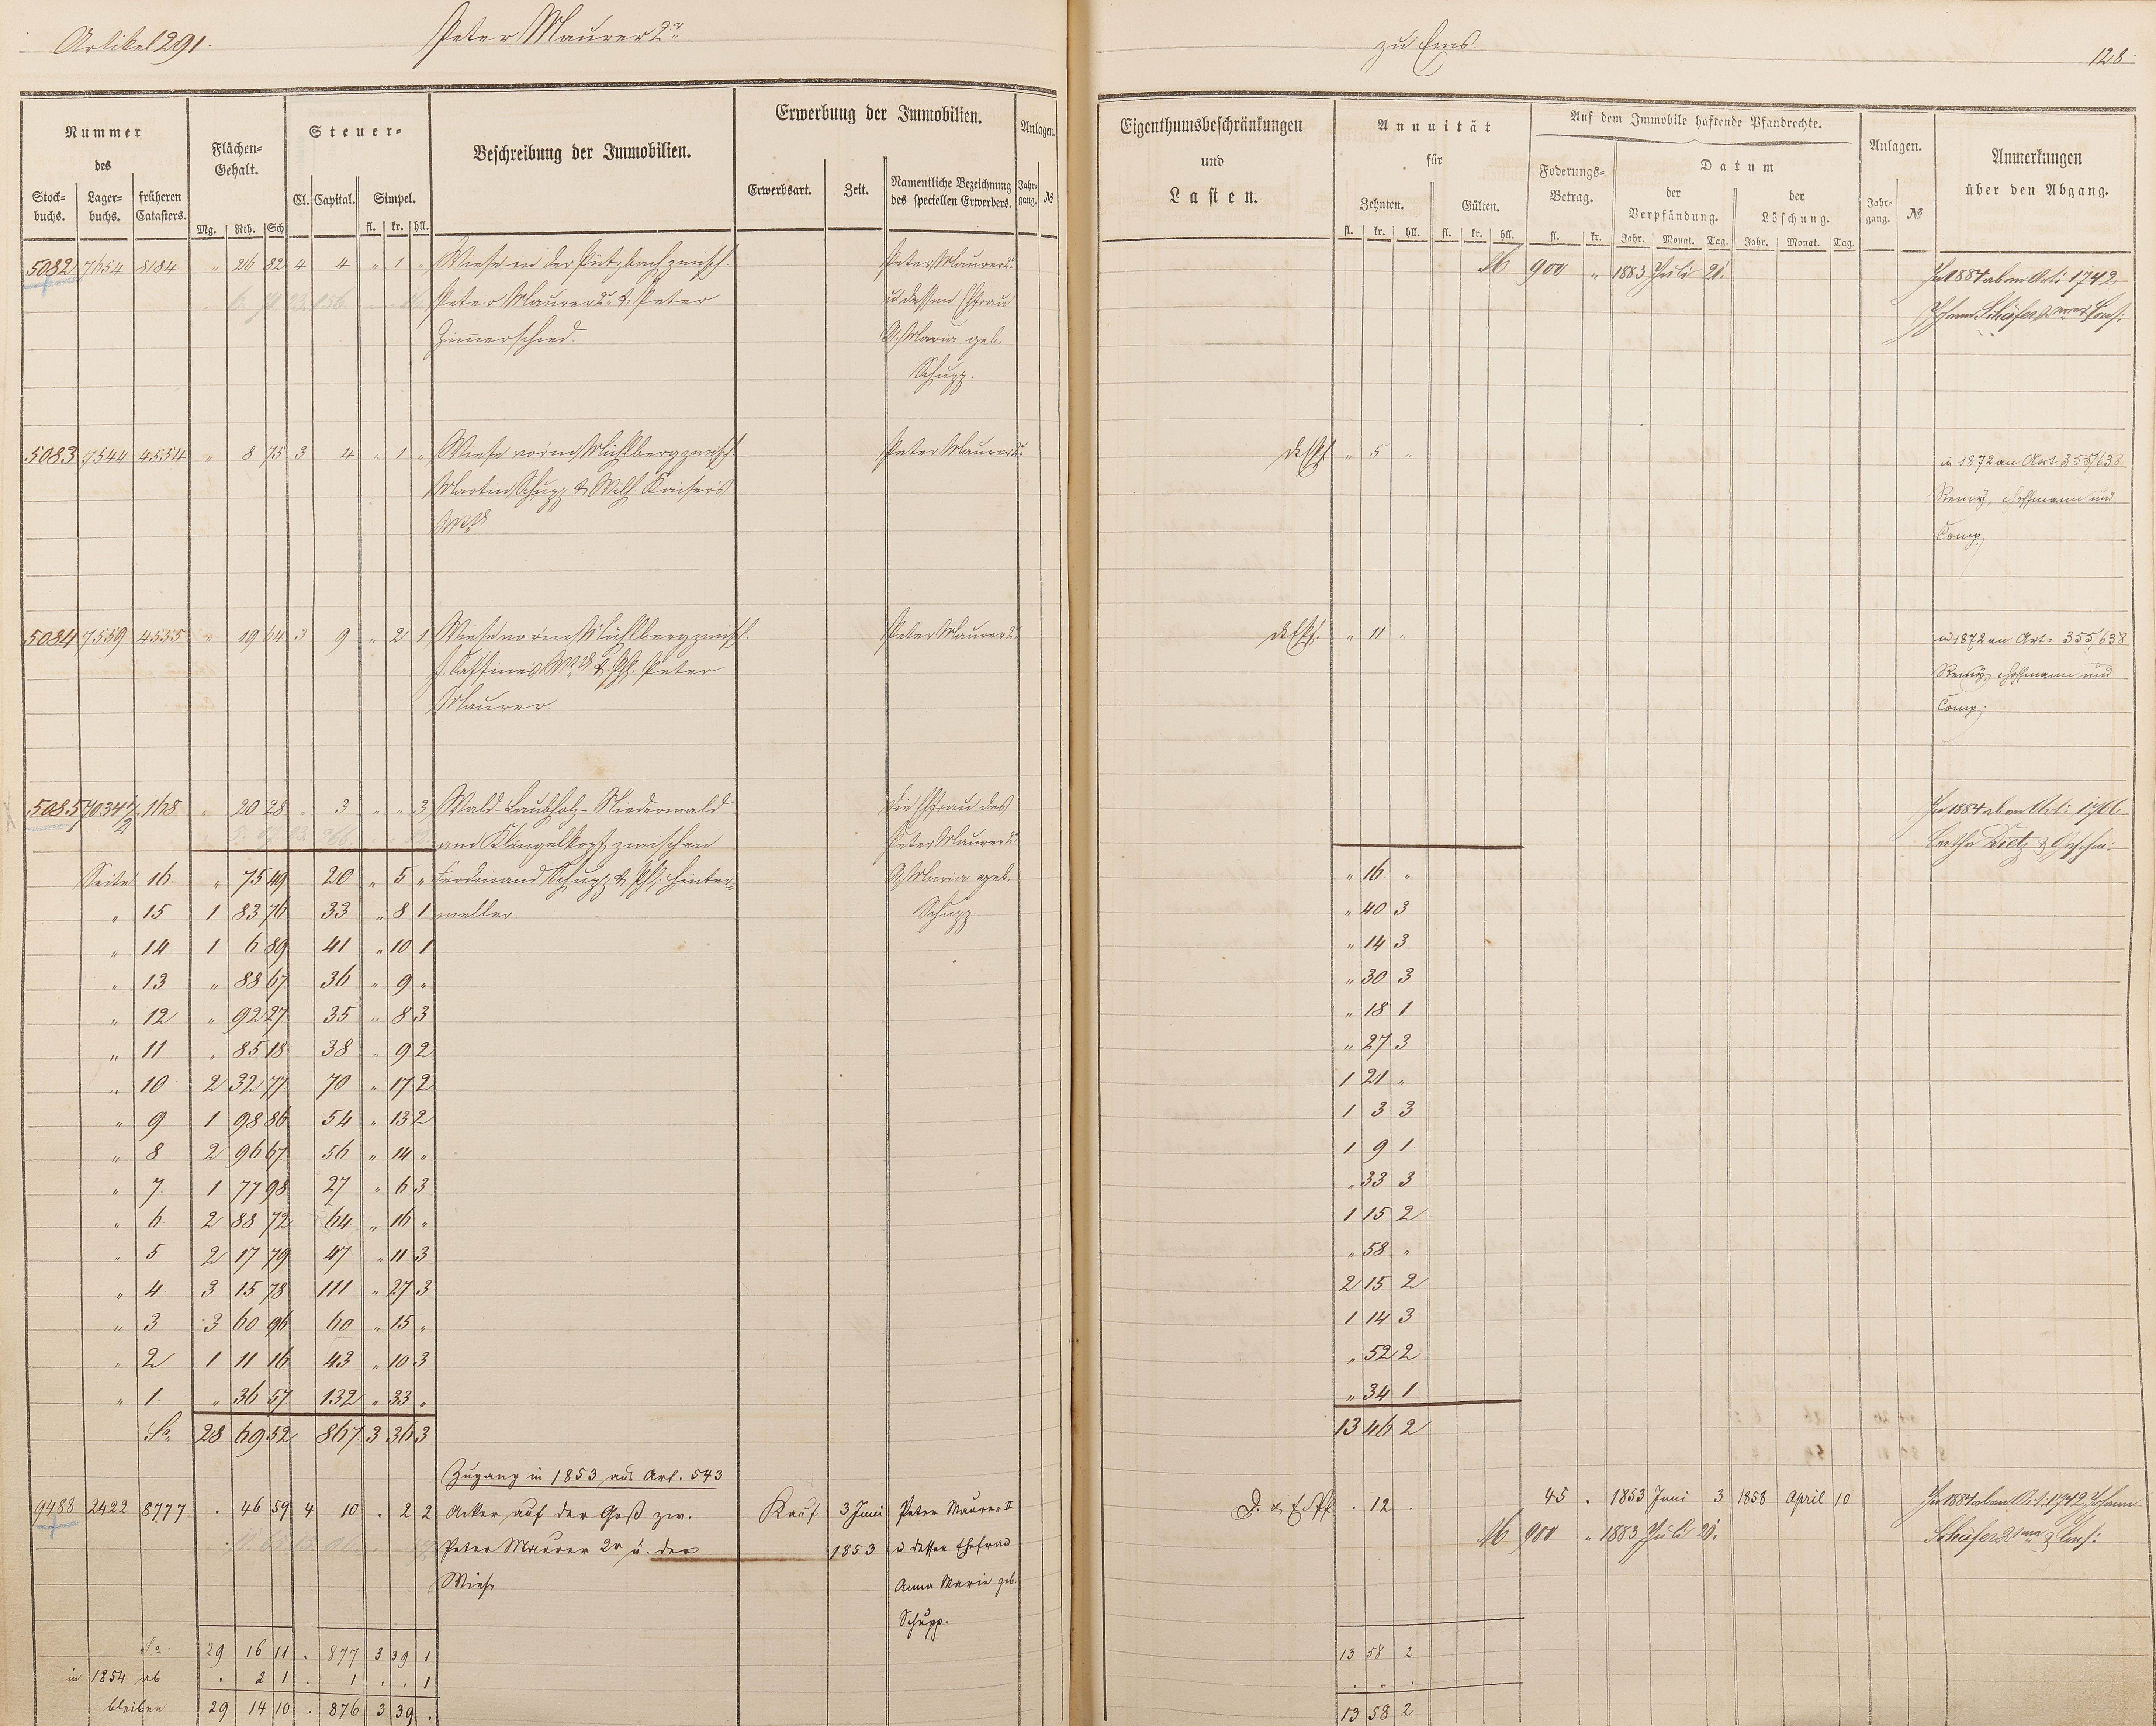 Artikel 291.
Peter Maurer 2r
zu Ems.
128
Nummer
des
Stock-
buchs.
Lager-
buchs.
früheren
Catasters.
Flächen-
Gehalt.
Mg. Rth. Sch
Steuer-
Cl. Capital. Simpel.
fl. kr. hll.
Beschreibung der Immobilien.
Erwerbung der Immobilien.
Erwerbsart. Zeit.
Namentliche Bezeichnung
des speciellen Erwerbers.
Anlagen.
Jahr-
gang.
№
Eigenthumsbeschränkungen
und
Lasten.
Annuität
für
Zehnten. Gülten.
fl. kr. hll. fl. kr. hll.
Auf dem Immobile haftende Pfandrechte.
Foderungs-
Betrag.
fl. kr.
Datum
der
Verpfändung.
der
Löschung.
Jahr. Monat. Tag. Jahr. Monat. Tag.
Anlagen.
Jahr-
gang.
№
Anmerkungen
über den Abgang.
5082 7654 8184 " 26 82 4 4 " 1 " Wiese in der Pützbach zwisch. Peter Maurer 2r M 900 " 1883 Juli 21. In 1884 ab an Art: 1742
Peter Maurer 2r & Peter u dessen Ehfrau Johann Schäfer 2 Cons:
Zimmerschied. A. Maria geb.
Schupp.
5083 7544 4554 " 8 75 3 4 " 1 " Wiese vorm Mühlberg zwisch. Peter Maurer 2r " 5 " in 1872 an Art 355/638
Martin Schupp & Wilh. Kaisers Remy, Hoffmann und
Wb Comp.
5084 7559 4535 " 19 64 3 9 " 2 1 Wiese vorm Mühlberg zwisch. Peter Maurer 2r " 11 " in 1872 an Art: 355/638
Peter Remy, Hoffmann und
Maurer. Comp.
5085 7034 1/2 168 " 20 28 " 3 " " 3 Wald-Laubholz-Niederwald die Ehfrau des In 1884 ab an Art: 1766
am Klingelkopf zwischen Peter Maurer 2r
Seite 16. " 75 49 20 " 5 " Ferdinand Schupp & Ph. Hinter- A. Maria geb. " 16 "
" 15 1 83 76 33 " 8 1 meller. Schupp. " 40 3
" 14 1 6 89 41 " 10 1 " 14 3
" 13 " 88 67 36 " 9 " " 30 3
" 12 " 92 27 35 " 8 3 " 18 1
" 11 " 85 18 38 " 9 2 " 27 3
" 10 2 32 77 70 " 17 2 1 21 "
" 9 1 98 86 54 " 13 2 1 3 3
" 8 2 96 67 56 " 14 " 1 9 1
" 7 1 77 98 27 " 6 3 " 33 3
" 6 2 88 72 64 " 16 " 1 15 2
" 5 2 17 79 47 " 11 3 " 58 "
" 4 3 15 78 111 " 27 3 2 15 2
" 3 3 60 96 60 " 15 " 1 14 3
" 2 1 11 16 43 " 10 3 " 52 2
" 1. " 36 57 132 " 33 " " 34 1
Sa. 28 69 52 867 3 36 3 13 46 2
Zugang in 1853 aus Art. 543
9488 2422 8777 . 46 59 4 10 . 2 2 Acker auf der Goß zw. Kauf 3 Juni Peter Maurer II . 12 . 45 . 1853 Juni 3 1858 April 10 In 1884 ab an Art. 1742 Johann
Peter Maurer 2r u. der 1853 u dessen Ehefrau M 900 " 1883 Juli 21. Schäfer 2 Cons:
Wiese Anna Marie geb.
Schupp.
Sa. 29 16 11 . 877 3 39 1 13 58 2
in 1854 ab . 2 1 . 1 . . 1 . . .
bleiben 29 14 10 . 876 3 39 . 13 58 2